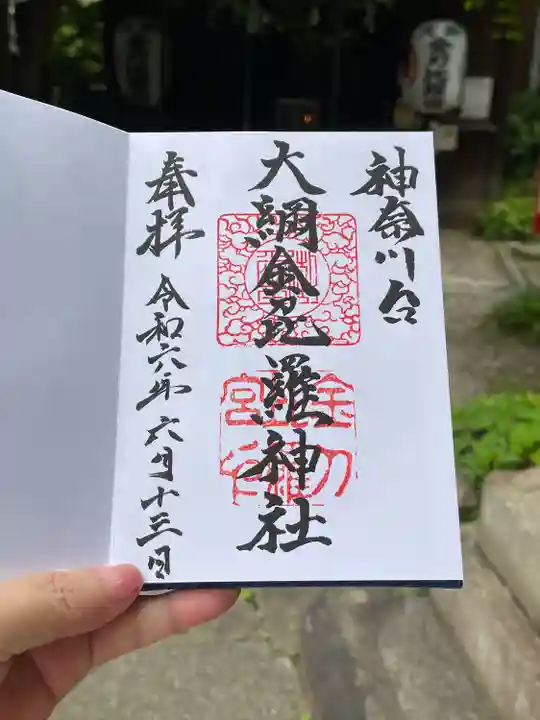 神奈川台
大綱金毘羅神社
奉拝
令和六年六月十三日